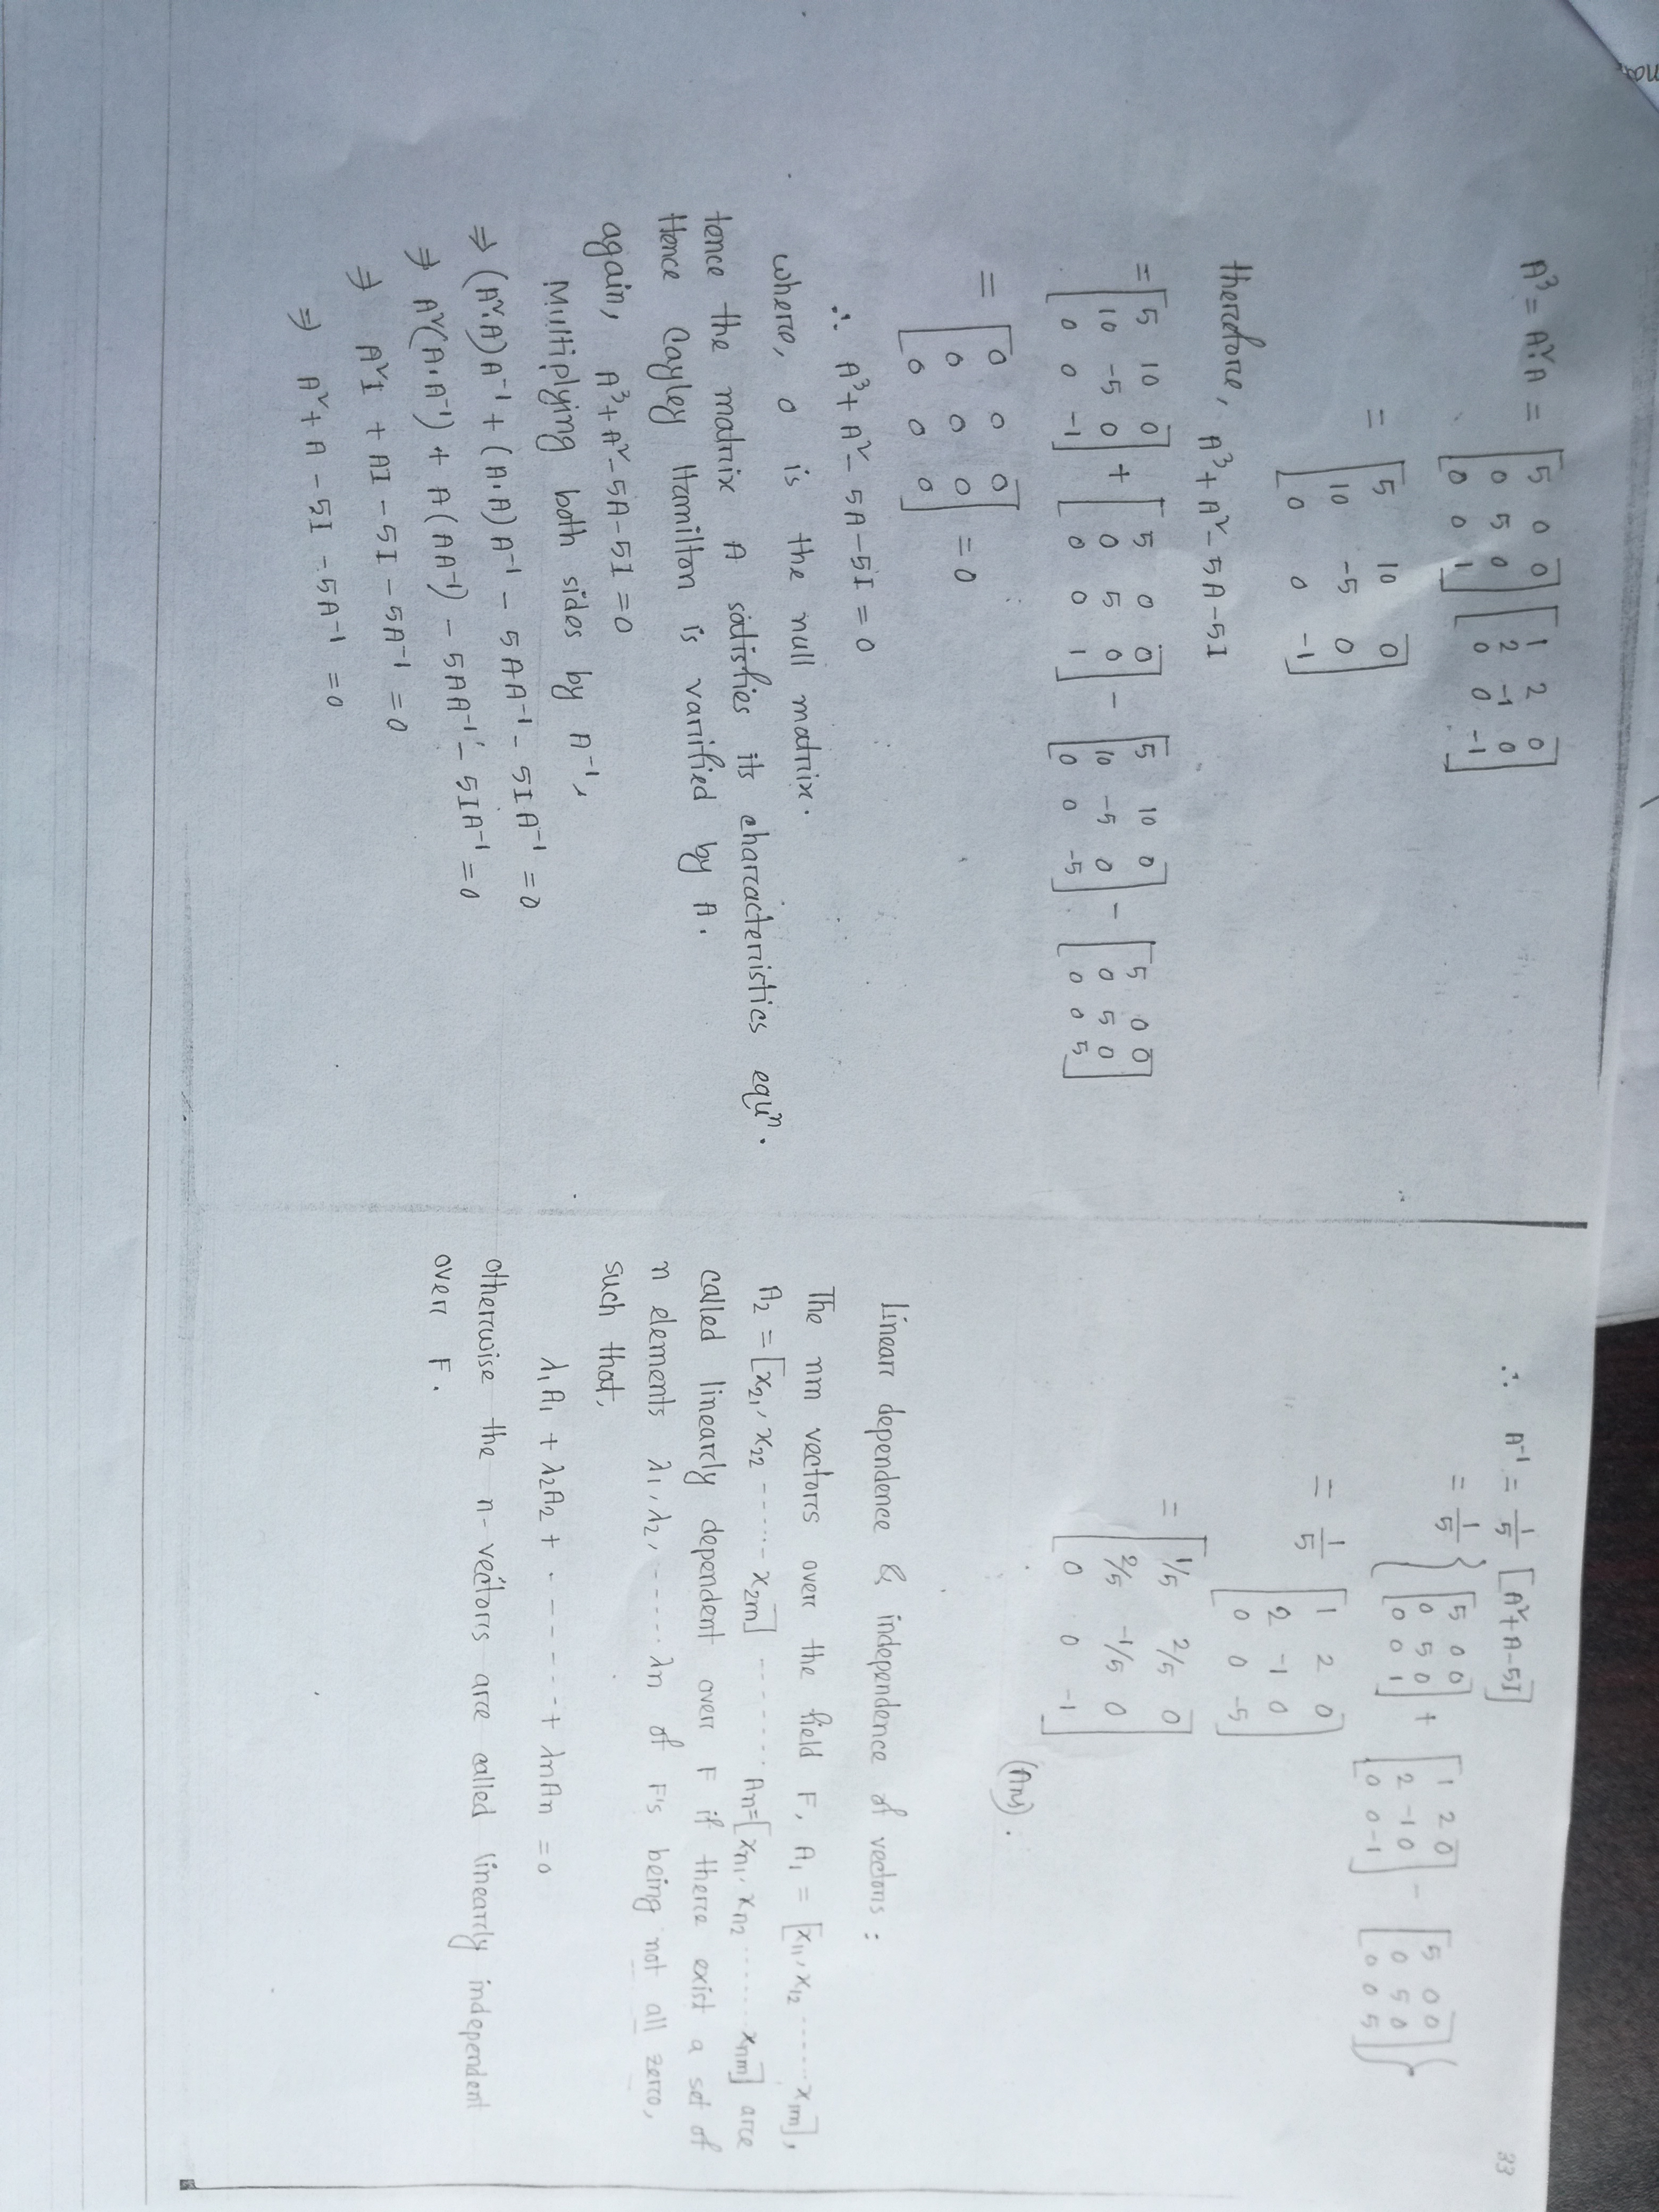 A³ = A².A = [5 0 0; 0 5 0; 0 0 1] [1 2 0; 2 -1 0; 0 0 -1]
= [5 10 0; 10 -5 0; 0 0 -1]
therefore,
A³ + A² - 5A - 5I
= [5 10 0; 10 -5 0; 0 0 -1] + [5 0 0; 0 5 0; 0 0 1] - [5 10 0; 10 -5 0; 0 0 -5] - [5 0 0; 0 5 0; 0 0 5]
= [0 0 0; 0 0 0; 0 0 0] = 0
∴ A³ + A² - 5A - 5I = 0
where, 0 is the null matrix.
Hence the matrix A satisfies its characteristics equⁿ.
Hence Cayley Hamilton is varified by A.
again, A³ + A² - 5A - 5I = 0
Multiplying both sides by A⁻¹,
⇒ (A².A)A⁻¹ + (A.A)A⁻¹ - 5AA⁻¹ - 5IA⁻¹ = 0
⇒ A²(A.A⁻¹) + A(AA⁻¹) - 5AA⁻¹ - 5IA⁻¹ = 0
⇒ A²I + AI - 5I - 5A⁻¹ = 0
⇒ A² + A - 5I - 5A⁻¹ = 0
33
∴ A⁻¹ = 1/5 [A² + A - 5I]
= 1/5 { [5 0 0; 0 5 0; 0 0 1] + [1 2 0; 2 -1 0; 0 0 -1] - [5 0 0; 0 5 0; 0 0 5] }
= 1/5 [1 2 0; 2 -1 0; 0 0 -5]
= [1/5 2/5 0; 2/5 -1/5 0; 0 0 -1]
(Ans).
Linear dependence & independence of vectors :
The nm vectors over the field F, A₁ = [x₁₁, x₁₂ ------ x₁m],
A₂ = [x₂₁, x₂₂ ------ x₂m] -------- An = [xn₁, xn₂ ------ xnm] are
called linearly dependent over F if there exist a set of
n elements λ₁, λ₂, ------ λn of F's being not all zero,
such that,
λ₁A₁ + λ₂A₂ + ------- + λnAn = 0
otherwise the n-vectors are called linearly independent
over F.